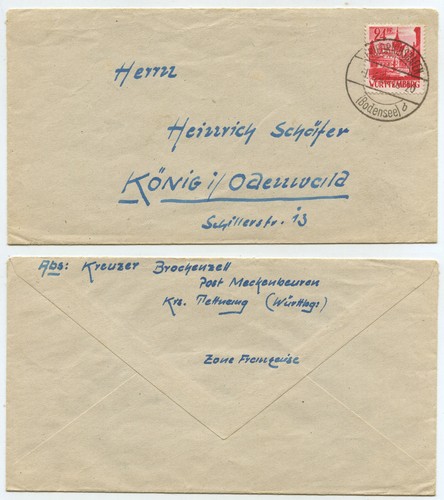 24
WÜRTTEMBERG
(Bodensee) d
Herrn
Heinrich Schäfer
KÖNIG i/Odenwald
Schillerstr. 13
Abs: Kreuzer Brochenzell
Post Meckenbeuren
Krs. Tettnang (Württbg:)
Zone Française